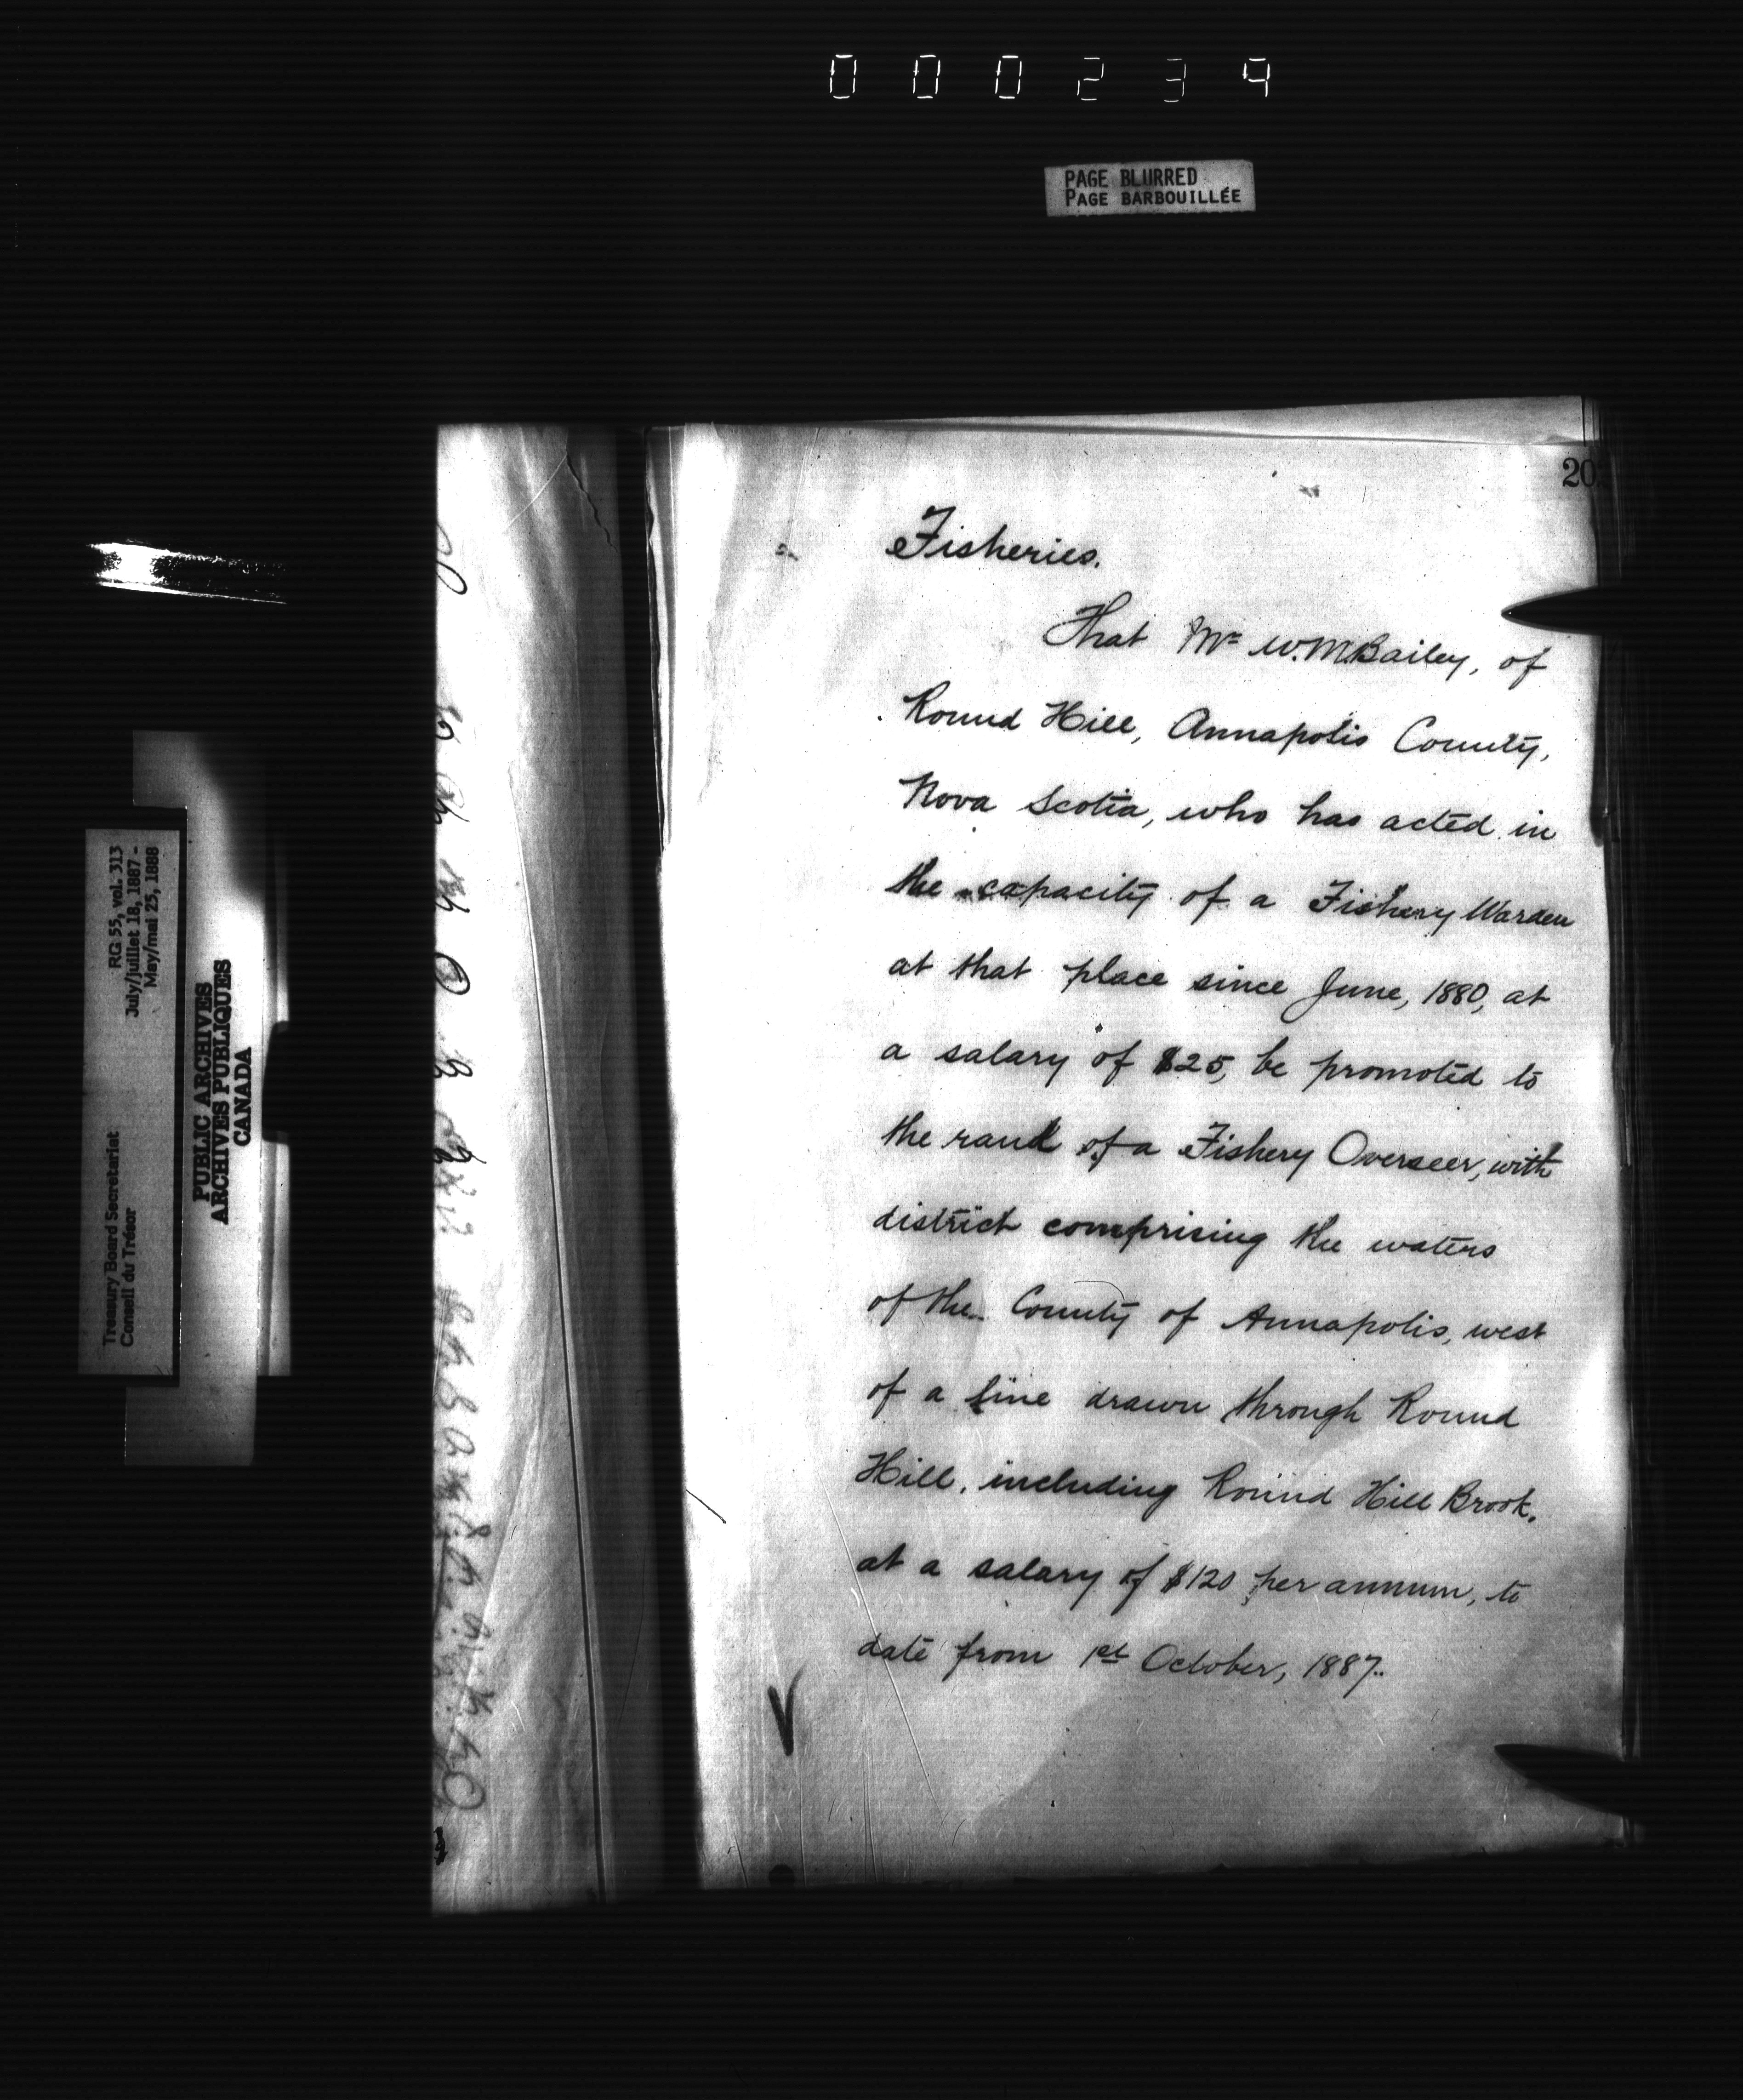 000234
PAGE BLURRED
PAGE BARBOUILLÉE
20
Fisheries.
That Mr W.M. Bailey, of
Round Hill, Annapolis County,
Nova Scotia, who has acted in
the capacity of a Fishery Warden
at that place since June, 1880, at
a salary of $25, be promoted to
the rank of a Fishery Overseer, with
district comprising the waters
of the County of Annapolis, west
of a line drawn through Round
Hill, including Round Hill Brook,
at a salary of $120 per annum, to
date from 1st October, 1887.
Treasury Board Secretariat RG 55, vol. 313
Conseil du Trésor July/juillet 18, 1887 -
May/mai 25, 1888
PUBLIC ARCHIVES
ARCHIVES PUBLIQUES
CANADA